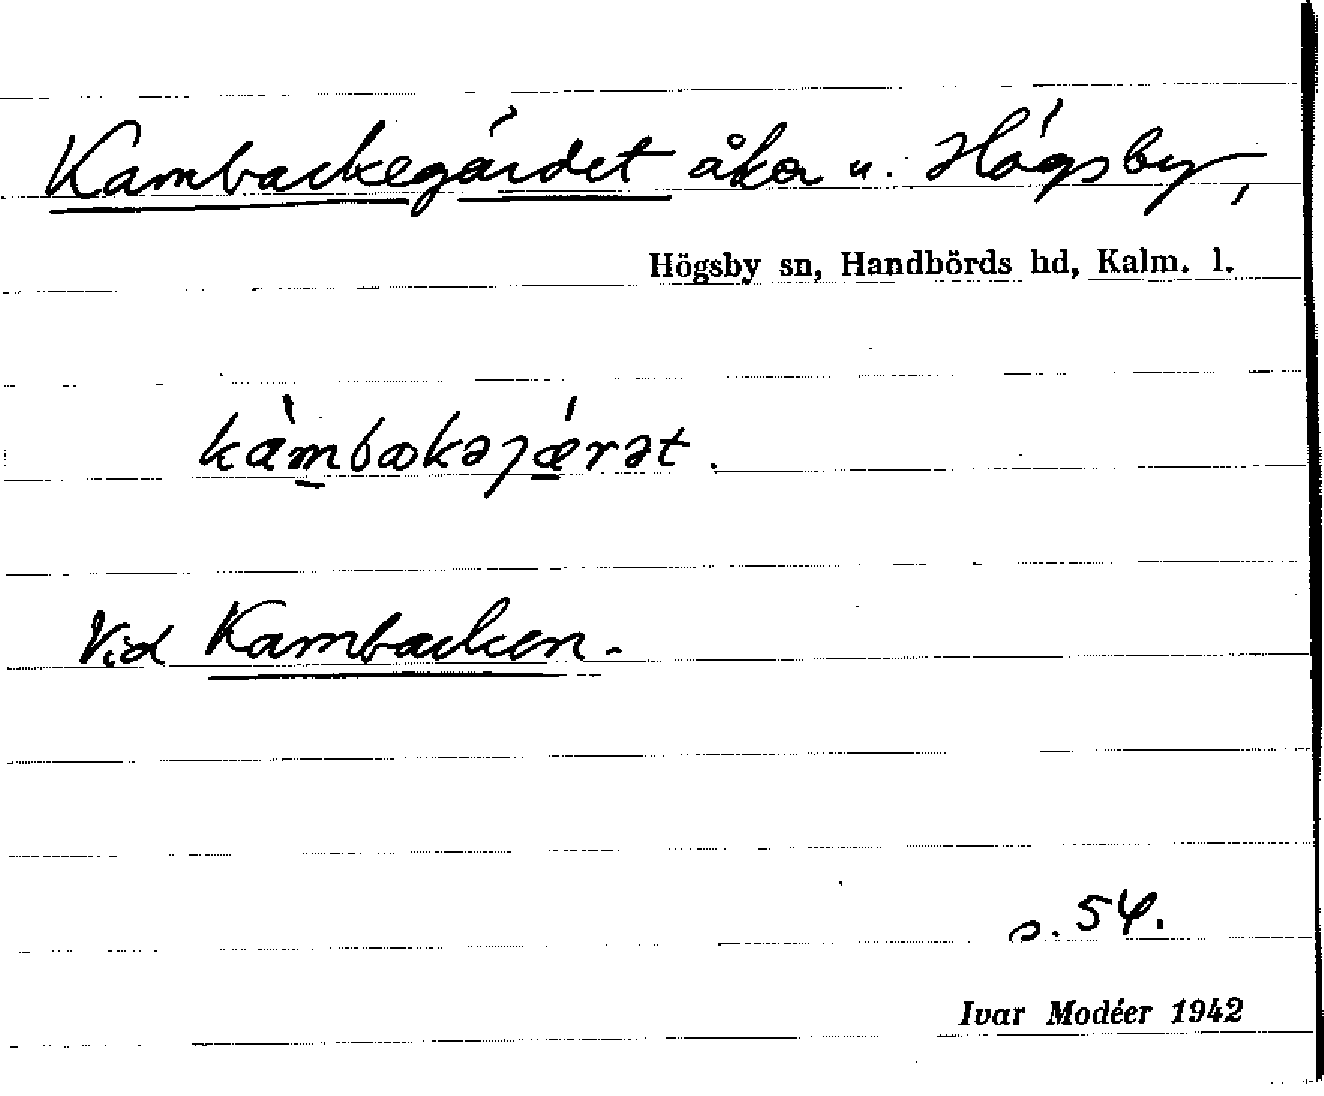 Kambackegärdet åker u. Högsby,
Högsby sn, Handbörds hd, Kalm. l.
kàmbakəjǽrət.
Vid Kambacken.
s. 54.
Ivar Modéer 1942